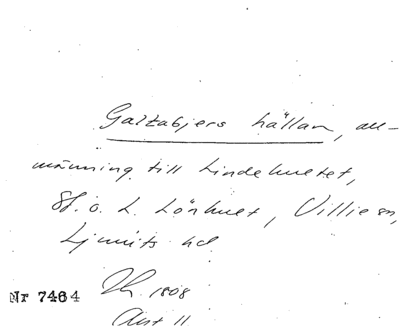 Galtabjers hällan, all-
männing till Lindehultet,
St. o. L. Lönhult, Villie sn,
Ljunits hd
Nr 7464
1808
Akt 11